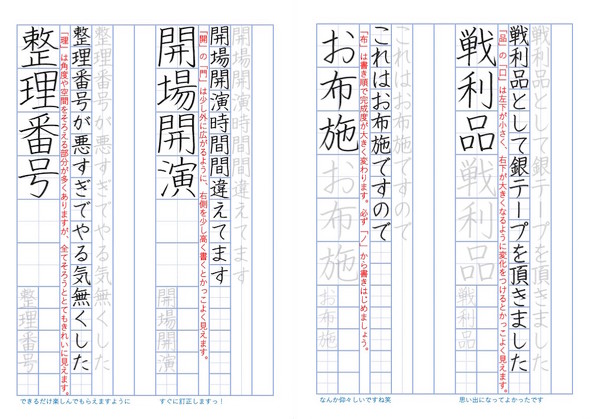 戦利品として銀テープを頂きました
戦利品として銀テープを頂きました
「品」の「口」は左下が小さく、右下が大きくなるように変化をつけるとかっこよく見えます。
戦利品戦利品
戦利品
思い出になってよかったです
これはお布施ですので
これはお布施ですので
「布」は書き順で完成度が大きく変わります。必ず「ノ」から書きはじめましょう。
お布施お布施
お布施
なんか仰々しいですね笑
開場開演時間間違えてます
開場開演時間間違えてます
「開」の「門」は少し外に広がるように、右側を少し高く書くとかっこよく見えます。
開場開演
開場開演
すぐに訂正しますっ！
整理番号が悪すぎでやる気無くした
整理番号が悪すぎでやる気無くした
「理」は角度や空間をそろえる部分が多くありますが、全てそろうととてもきれいに見えます。
整理番号
整理番号
できるだけ楽しんでもらえますように